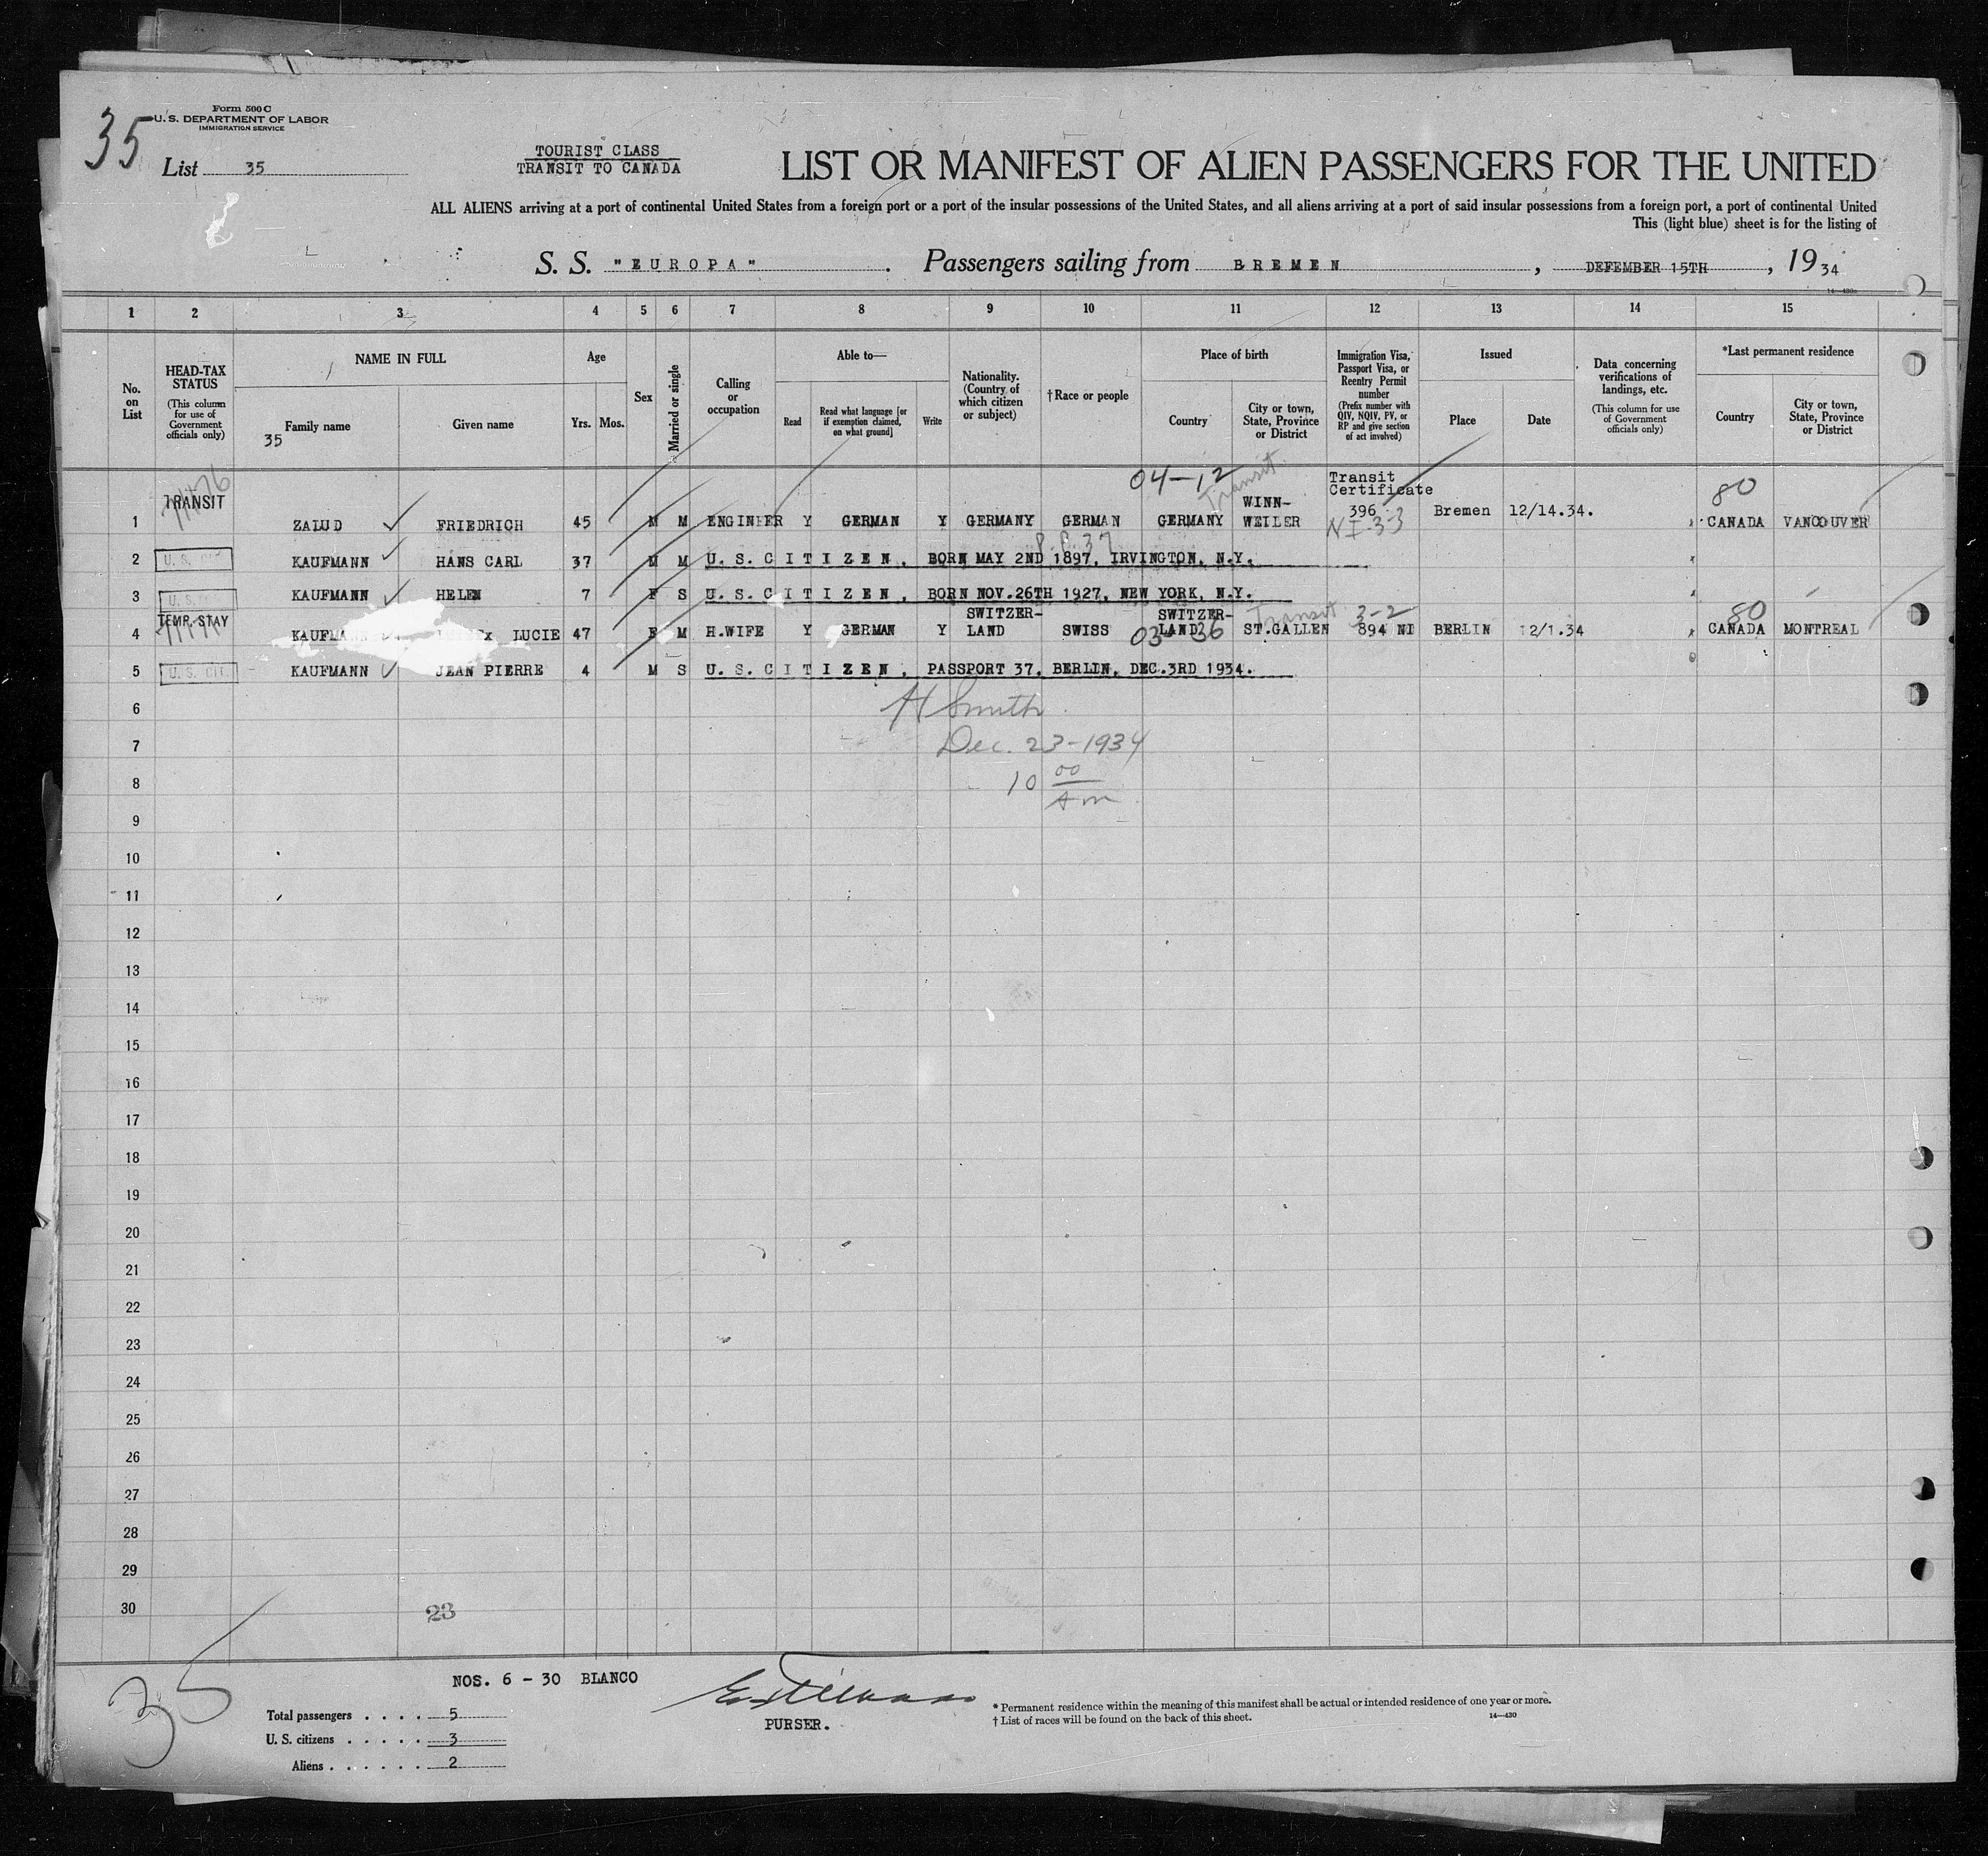 Form 500 C
U. S. DEPARTMENT OF LABOR
IMMIGRATION SERVICE
35
List 35
TOURIST CLASS
TRANSIT TO CANADA
LIST OR MANIFEST OF ALIEN PASSENGERS FOR THE UNITED
ALL ALIENS arriving at a port of continental United States from a foreign port or a port of the insular possessions of the United States, and all aliens arriving at a port of said insular possessions from a foreign port, a port of continental United
This (light blue) sheet is for the listing of
S. S. "EUROPA". Passengers sailing from BREMEN, DEFEMBER 15TH, 1934
14—430
1 2 3 4 5 6 7 8 9 10 11 12 13 14 15
No. on List
HEAD-TAX STATUS
(This column for use of Government officials only)
NAME IN FULL
Family name
35
Given name
Age
Yrs. Mos.
Sex
Married or single
Calling or occupation
Able to—
Read
Read what language [or if exemption claimed, on what ground]
Write
Nationality. (Country of which citizen or subject)
†Race or people
Place of birth
Country
City or town, State, Province or District
Immigration Visa, Passport Visa, or Reentry Permit number
(Prefix number with QIV, NQIV, PV, or RP and give section of act involved)
Issued
Place
Date
Data concerning verifications of landings, etc.
(This column for use of Government officials only)
*Last permanent residence
Country
City or town, State, Province or District
04-12 Transit Transit Certificate 80
1 TRANSIT ZALUD FRIEDRICH 45 M M ENGINEER Y GERMAN Y GERMANY GERMAN GERMANY WINN-WEILER 396 Bremen 12/14.34. CANADA VANCOUVER
NI-3-3
P.P. 37
2 U. S. CIT. KAUFMANN HANS CARL 37 M M U. S. CITIZEN, BORN MAY 2ND 1897, IRVINGTON, N.Y.
3 U. S. CIT. KAUFMANN HELEN 7 F S U. S. CITIZEN, BORN NOV.26TH 1927, NEW YORK, N.Y.
Transit 3-2 80
4 TEMP. STAY KAUFMANN LUCIE 47 F M H.WIFE Y GERMAN Y SWITZER-LAND SWISS SWITZER-LAND ST.GALLEN 894 NI BERLIN 12/1.34 CANADA MONTREAL
03-36
5 U. S. CIT. KAUFMANN JEAN PIERRE 4 M S U. S. CITIZEN, PASSPORT 37, BERLIN, DEC.3RD 1934.
6 H Smith
7 Dec. 23-1934
8 10 00
Am
9
10
11
12
13
14
15
16
17
18
19
20
21
22
23
24
25
26
27
28
29
30
23
35
NOS. 6 - 30 BLANCO
Total passengers . . . . 5
U. S. citizens . . . . . . 3
Aliens . . . . . . 2
PURSER.
* Permanent residence within the meaning of this manifest shall be actual or intended residence of one year or more.
† List of races will be found on the back of this sheet.
14—430